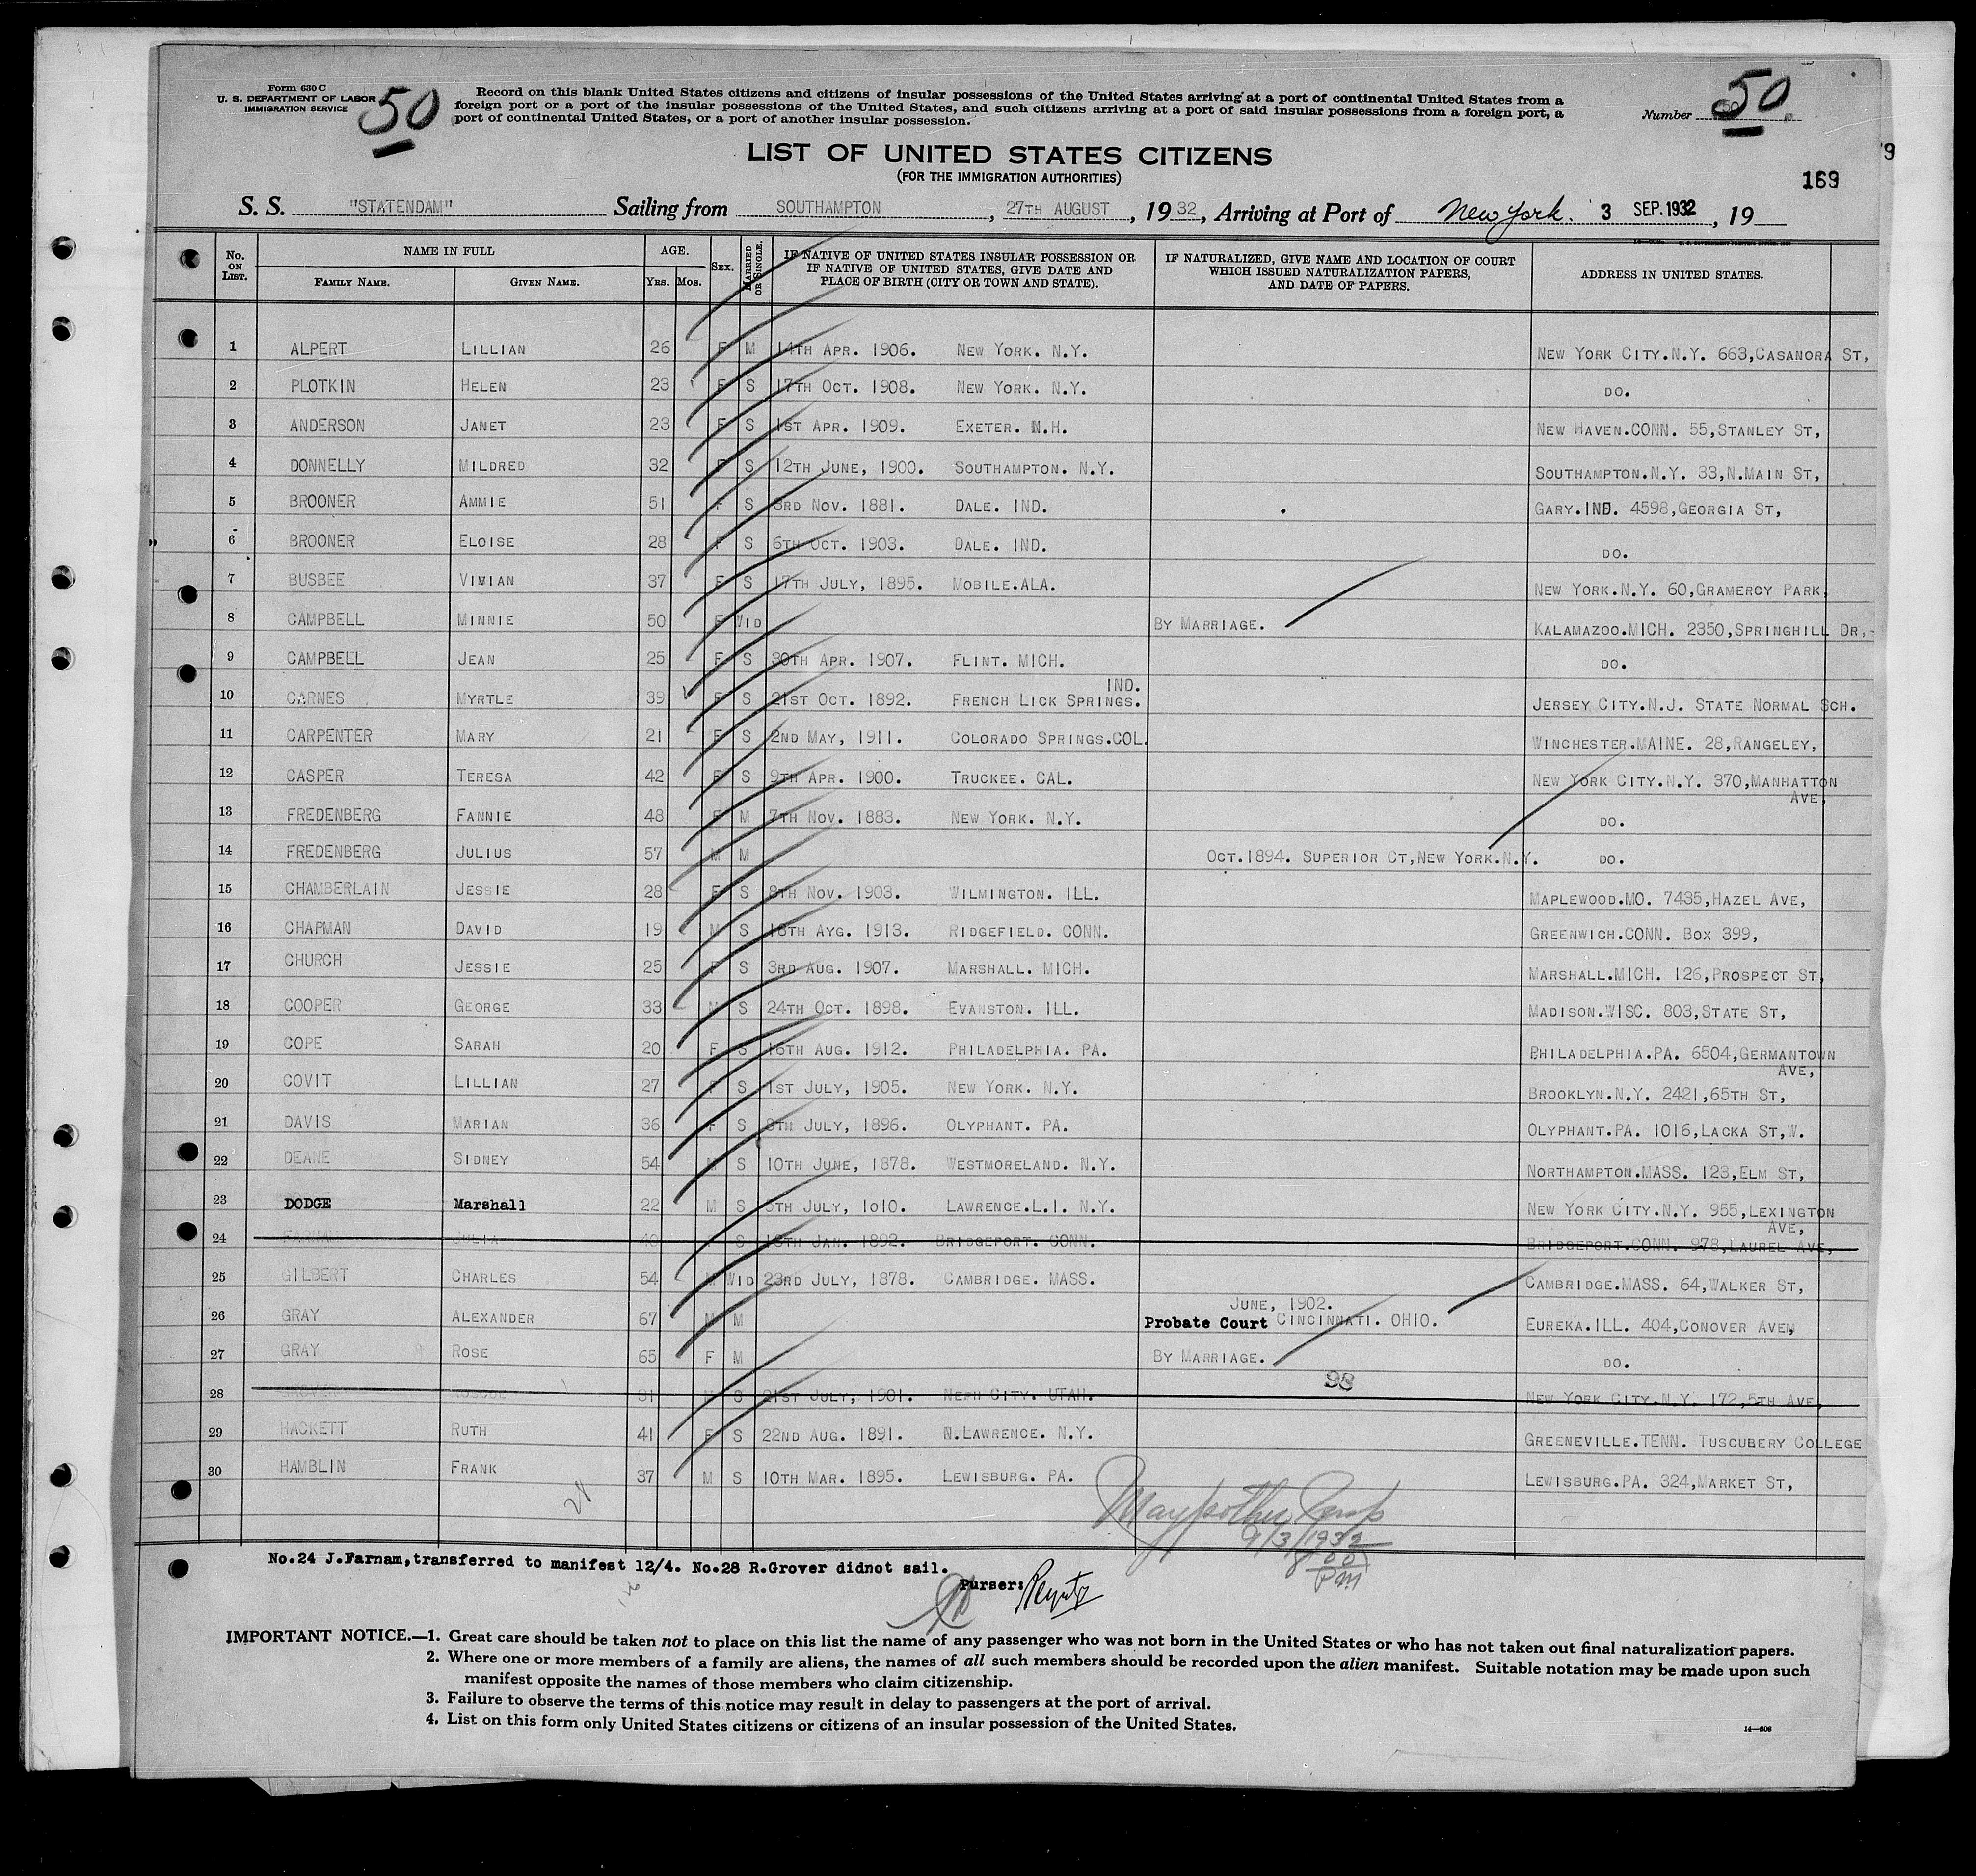 Form 630 C
U. S. DEPARTMENT OF LABOR
IMMIGRATION SERVICE
50
Record on this blank United States citizens and citizens of insular possessions of the United States arriving at a port of continental United States from a
foreign port or a port of the insular possessions of the United States, and such citizens arriving at a port of said insular possessions from a foreign port, a
port of continental United States, or a port of another insular possession.
Number 50
LIST OF UNITED STATES CITIZENS
(FOR THE IMMIGRATION AUTHORITIES)
169
S. S. "STATENDAM" Sailing from SOUTHAMPTON, 27TH AUGUST, 1932, Arriving at Port of New York. 3 SEP. 1932, 19
No. ON LIST. NAME IN FULL AGE. SEX. MARRIED OR SINGLE. IF NATIVE OF UNITED STATES INSULAR POSSESSION OR IF NATIVE OF UNITED STATES, GIVE DATE AND PLACE OF BIRTH (CITY OR TOWN AND STATE). IF NATURALIZED, GIVE NAME AND LOCATION OF COURT WHICH ISSUED NATURALIZATION PAPERS, AND DATE OF PAPERS. ADDRESS IN UNITED STATES.
FAMILY NAME. GIVEN NAME. YRS. MOS.
1 ALPERT LILLIAN 26 F M 14TH APR. 1906. NEW YORK. N.Y. NEW YORK CITY.N.Y. 663,CASANORA ST,
2 PLOTKIN HELEN 23 F S 17TH OCT. 1908. NEW YORK. N.Y. DO.
3 ANDERSON JANET 23 F S 1ST APR. 1909. EXETER. N.H. NEW HAVEN.CONN. 55,STANLEY ST,
4 DONNELLY MILDRED 32 F S 12TH JUNE, 1900. SOUTHAMPTON. N.Y. SOUTHAMPTON.N.Y. 33,N.MAIN ST,
5 BROONER AMMIE 51 F S 3RD NOV. 1881. DALE. IND. GARY.IND. 4598,GEORGIA ST,
6 BROONER ELOISE 28 F S 6TH OCT. 1903. DALE. IND. DO.
7 BUSBEE VIVIAN 37 F S 17TH JULY, 1895. MOBILE.ALA. NEW YORK.N.Y. 60,GRAMERCY PARK,
8 CAMPBELL MINNIE 50 F WID BY MARRIAGE. KALAMAZOO.MICH. 2350,SPRINGHILL DR,-
9 CAMPBELL JEAN 25 F S 30TH APR. 1907. FLINT. MICH. DO.
10 CARNES MYRTLE 39 F S 21ST OCT. 1892. FRENCH LICK SPRINGS. IND. JERSEY CITY.N.J. STATE NORMAL SCH.
11 CARPENTER MARY 21 F S 2ND MAY, 1911. COLORADO SPRINGS.COL. WINCHESTER.MAINE. 28,RANGELEY,
12 CASPER TERESA 42 F S 9TH APR. 1900. TRUCKEE. CAL. NEW YORK CITY.N.Y. 370,MANHATTON AVE,
13 FREDENBERG FANNIE 48 F M 7TH NOV. 1883. NEW YORK. N.Y. DO.
14 FREDENBERG JULIUS 57 M M OCT.1894. SUPERIOR CT,NEW YORK.N.Y. DO.
15 CHAMBERLAIN JESSIE 28 F S 8TH NOV. 1903. WILMINGTON. ILL. MAPLEWOOD.MO. 7435,HAZEL AVE,
16 CHAPMAN DAVID 19 M S AYG. 1913. RIDGEFIELD. CONN. GREENWICH.CONN. BOX 399,
17 CHURCH JESSIE 25 F S 3RD AUG. 1907. MARSHALL. MICH. MARSHALL.MICH. 126,PROSPECT ST,
18 COOPER GEORGE 33 M S 24TH OCT. 1898. EVANSTON. ILL. MADISON.WISC. 803,STATE ST,
19 COPE SARAH 20 F S 16TH AUG. 1912. PHILADELPHIA. PA. PHILADELPHIA.PA. 6504,GERMANTOWN AVE,
20 COVIT LILLIAN 27 F S 1ST JULY, 1905. NEW YORK. N.Y. BROOKLYN.N.Y. 2421,65TH ST,
21 DAVIS MARIAN 36 F S JULY, 1896. OLYPHANT. PA. OLYPHANT.PA. 1016,LACKA ST,W.
22 DEANE SIDNEY 54 M S 10TH JUNE, 1878. WESTMORELAND. N.Y. NORTHAMPTON.MASS. 123,ELM ST,
23 DODGE Marshall 22 M S JULY, 1o10. LAWRENCE.L.I. N.Y. NEW YORK CITY.N.Y. 955,LEXINGTON AVE,
24 FARNAM JULIA 40 S JAN. 1892. BRIDGEPORT. CONN. BRIDGEPORT.CONN. 978,LAUREL AVE,
25 GILBERT CHARLES 54 M WID 23RD JULY, 1878. CAMBRIDGE. MASS. CAMBRIDGE.MASS. 64,WALKER ST,
26 GRAY ALEXANDER 67 M M JUNE, 1902. Probate Court CINCINNATI. OHIO. EUREKA.ILL. 404,CONOVER AVE,
27 GRAY ROSE 65 F M BY MARRIAGE. DO.
98
28 ROSCOE 31 M S 21ST JULY, 1901. NEPH CITY. UTAH. NEW YORK CITY.N.Y. 172,5TH AVE,
29 HACKETT RUTH 41 F S 22ND AUG. 1891. N.LAWRENCE. N.Y. GREENEVILLE.TENN. TUSCUBERY COLLEGE
30 HAMBLIN FRANK 37 M S 10TH MAR. 1895. LEWISBURG. PA. LEWISBURG.PA. 324,MARKET ST,
9/3/1932
No.24 J.Farnam,transferred to manifest 12/4. No.28 R.Grover didnot sail.
Purser:
IMPORTANT NOTICE.—1. Great care should be taken not to place on this list the name of any passenger who was not born in the United States or who has not taken out final naturalization papers.
2. Where one or more members of a family are aliens, the names of all such members should be recorded upon the alien manifest. Suitable notation may be made upon such
manifest opposite the names of those members who claim citizenship.
3. Failure to observe the terms of this notice may result in delay to passengers at the port of arrival.
4. List on this form only United States citizens or citizens of an insular possession of the United States.
14—606